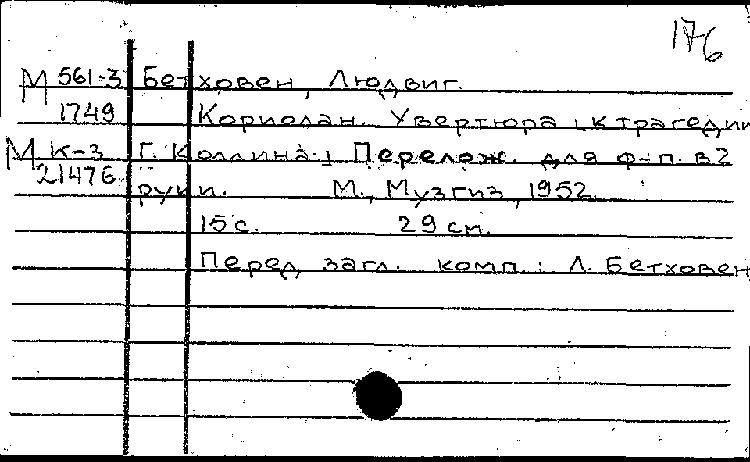 176
М 561-3 Бетховен, Людвиг.
1749 Кориолан. Увертюра [к трагедии
М К-3 Г. Коллина.] Перелож. для ф-п. в 2
21476 руки. М., Музгиз, 1952.
15 с. 29 см.
Перед загл. комп.: Л. Бетховен